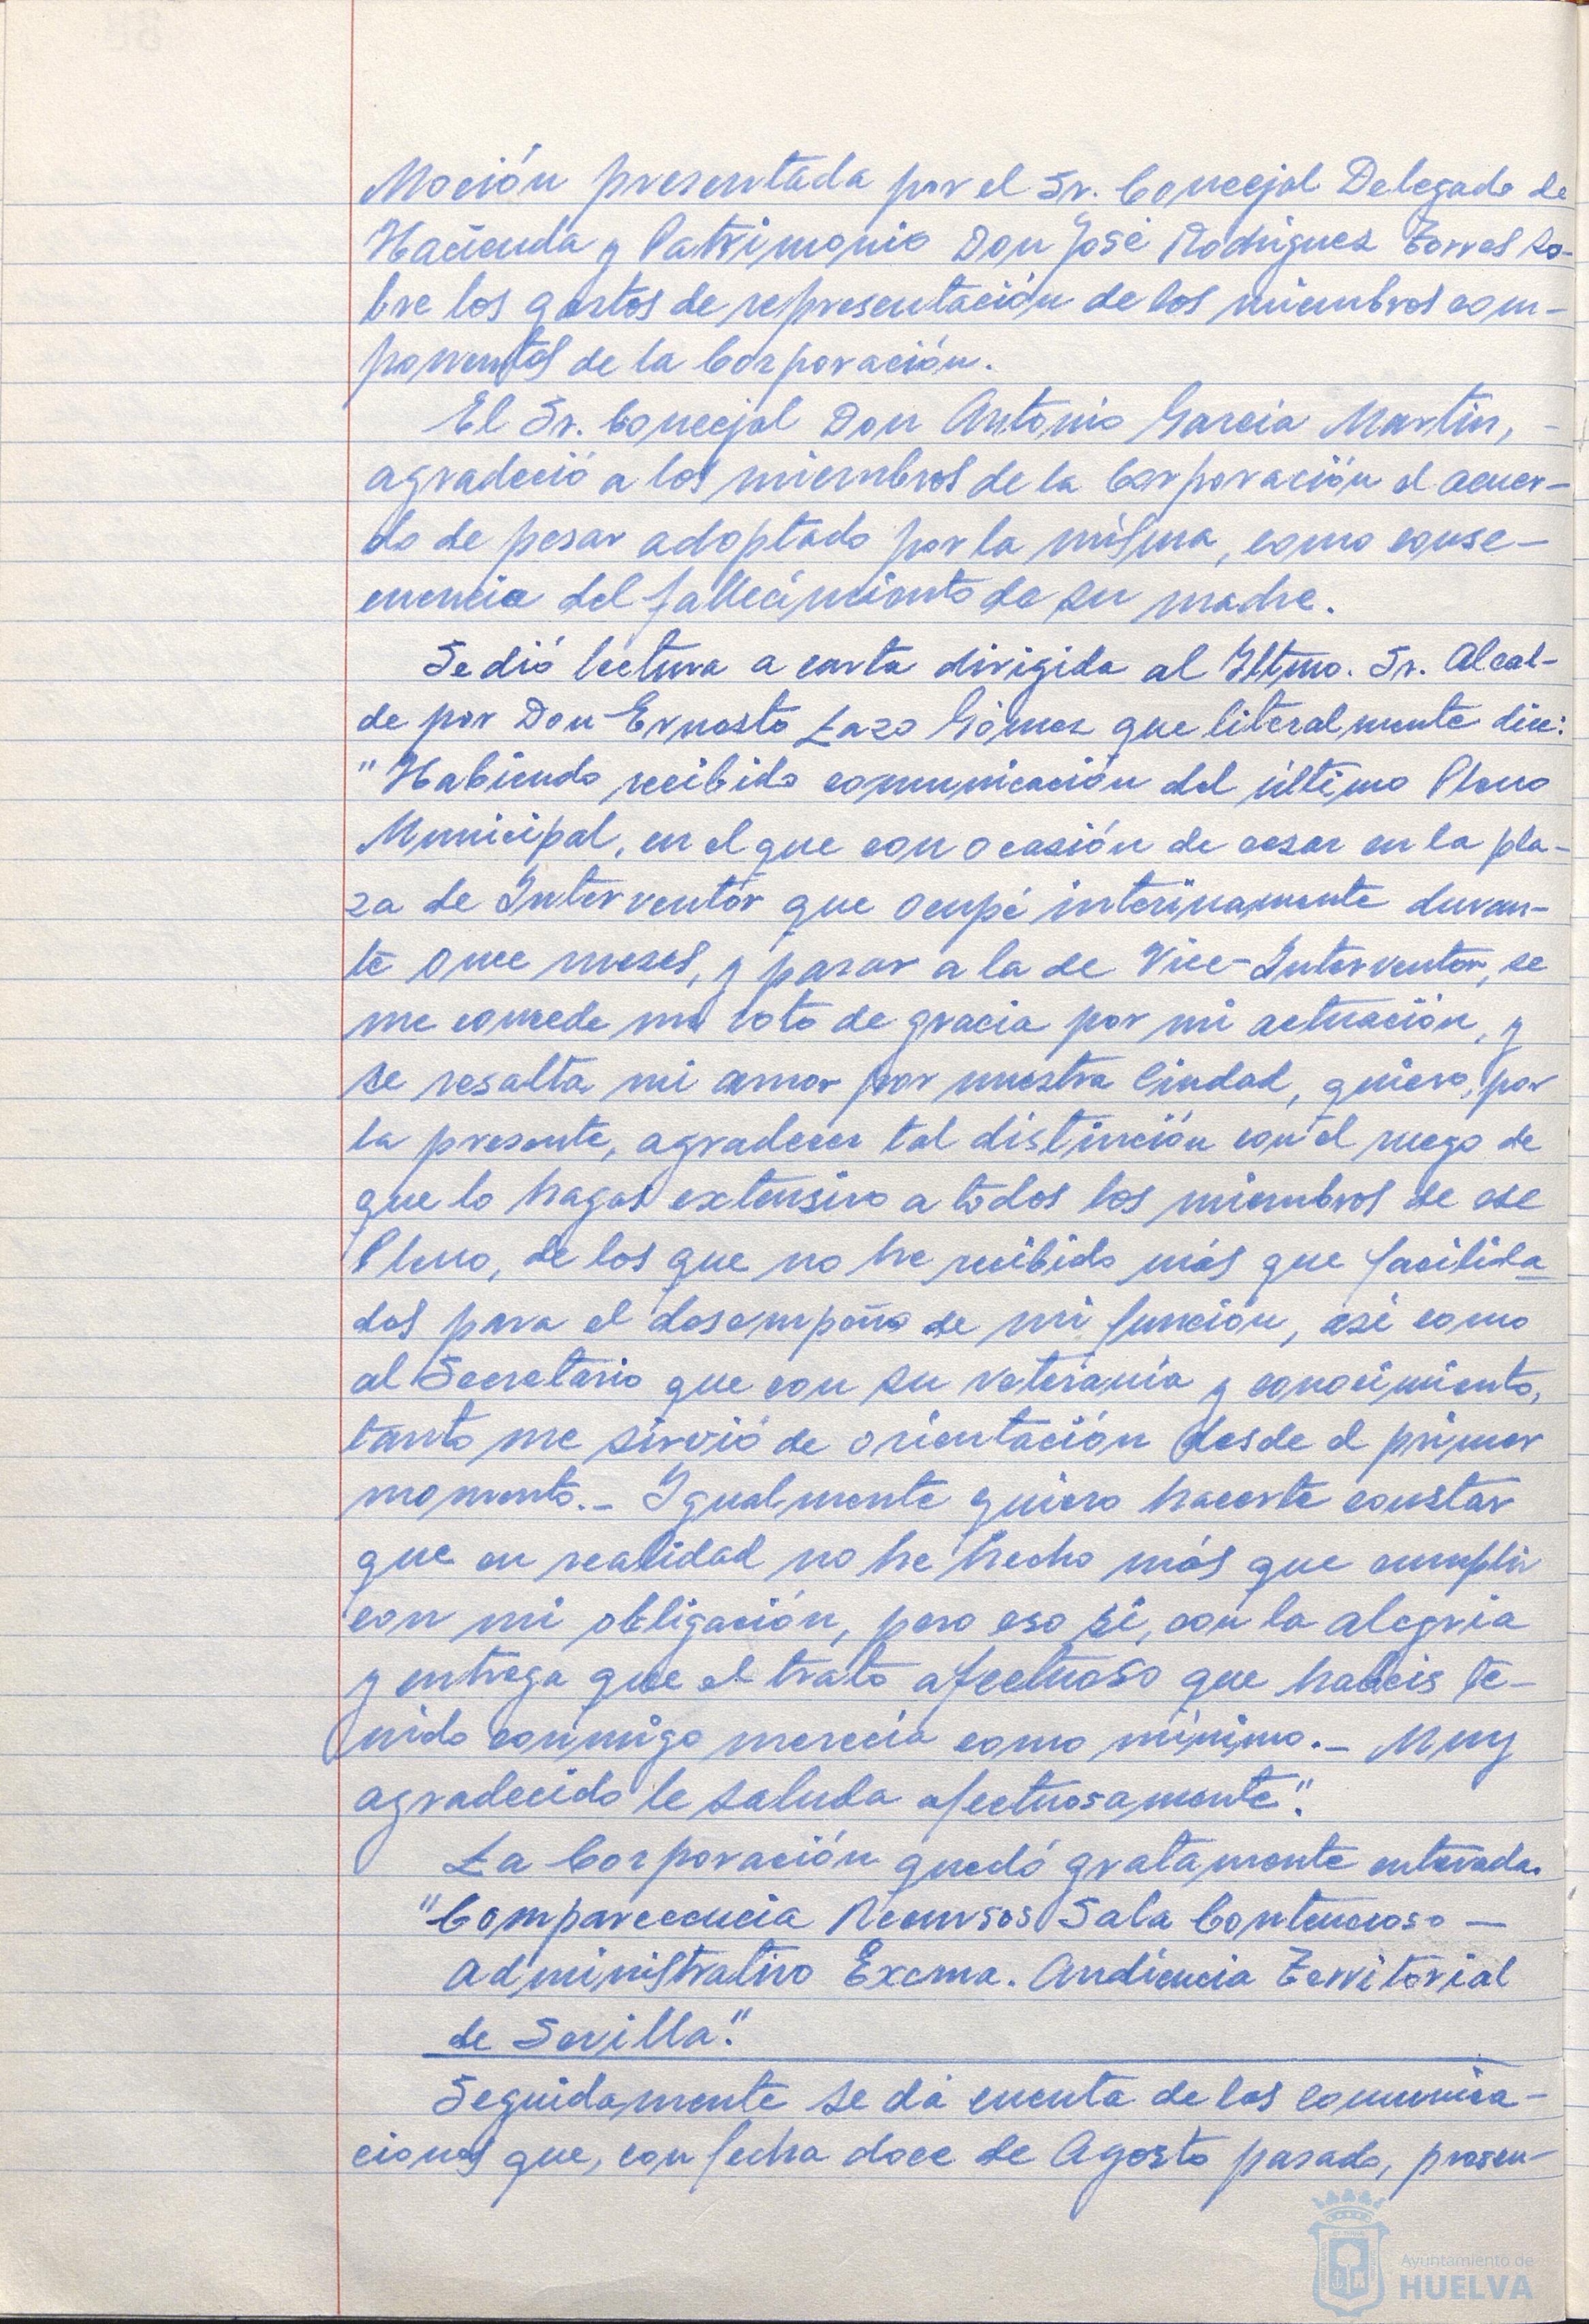 Moción presentada por el Sr. Concejal Delegado de
Hacienda y Patrimonio Don José Rodríguez Torres so-
bre los gastos de representación de los miembros com-
ponentes de la Corporación.
El Sr. Concejal Don Antonio García Martín, -
agradeció a los miembros de la Corporación el acuer-
do de pesar adoptado por la misma, como conse-
cuencia del fallecimiento de su madre.
Se dió lectura a carta dirigida al Iltmo. Sr. Alcal-
de por Don Ernesto Lazo Gómez que literalmente dice:
"Habiendo recibido comunicación del último Pleno
Municipal, en el que con ocasión de cesar en la pla-
za de Interventor que ocupé interinamente duran-
te once meses, y pasar a la de Vice-Interventor, se
me concede un voto de gracia por mi actuación, y
se resalta mi amor por nuestra Ciudad, quiero, por
la presente, agradecer tal distinción con el ruego de
que lo hagas extensivo a todos los miembros de ese
Pleno, de los que no he recibido más que facilida
des para el desempeño de mi función, así como
al Secretario que con su veteranía y conocimiento,
tanto me sirvió de orientación desde el primer
momento.- Igualmente quiero hacerte constar
que en realidad no he hecho más que cumplir
con mi obligación, pero eso sí, con la alegría
y entrega que el trato afectuoso que habeis te-
nido conmigo merecía como mínimo.- Muy
agradecido le saluda afectuosamente".
La Corporación quedó gratamente enterada.
"Comparecencia Recursos Sala Contencioso -
Administrativo Excma. Audiencia Territorial
de Sevilla".
Seguidamente se dá cuenta de las comunica-
ciones que, con fecha doce de Agosto pasado, presen-
Ayuntamiento de
HUELVA